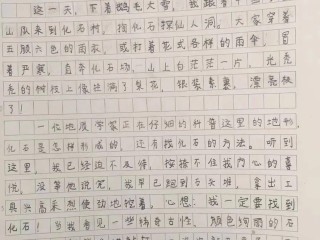 这一天，下着鹅毛大雪，我跟着
山瓜来到化石村，找化石探仙人洞。大家穿着
五颜六色的雨衣，或打着各式各样的雨伞，冒
着严寒，直奔化石场，山上白茫茫一片，光秃
秃的树枝上像挂满了梨花，银装素裹，漂亮极
了！
一位地质学家正在仔细的科普这里的地形，
化石是怎样形成的，还有找化石的方法。听到
这里，我已经迫不及待，按捺不住我内心的喜
悦，没等他说完，我早已跑到石头堆，拿出工
具兴高采烈使劲地挖着，心想：我一定要找到
化石！当我看见一些稀奇古怪、颜色绚丽的石